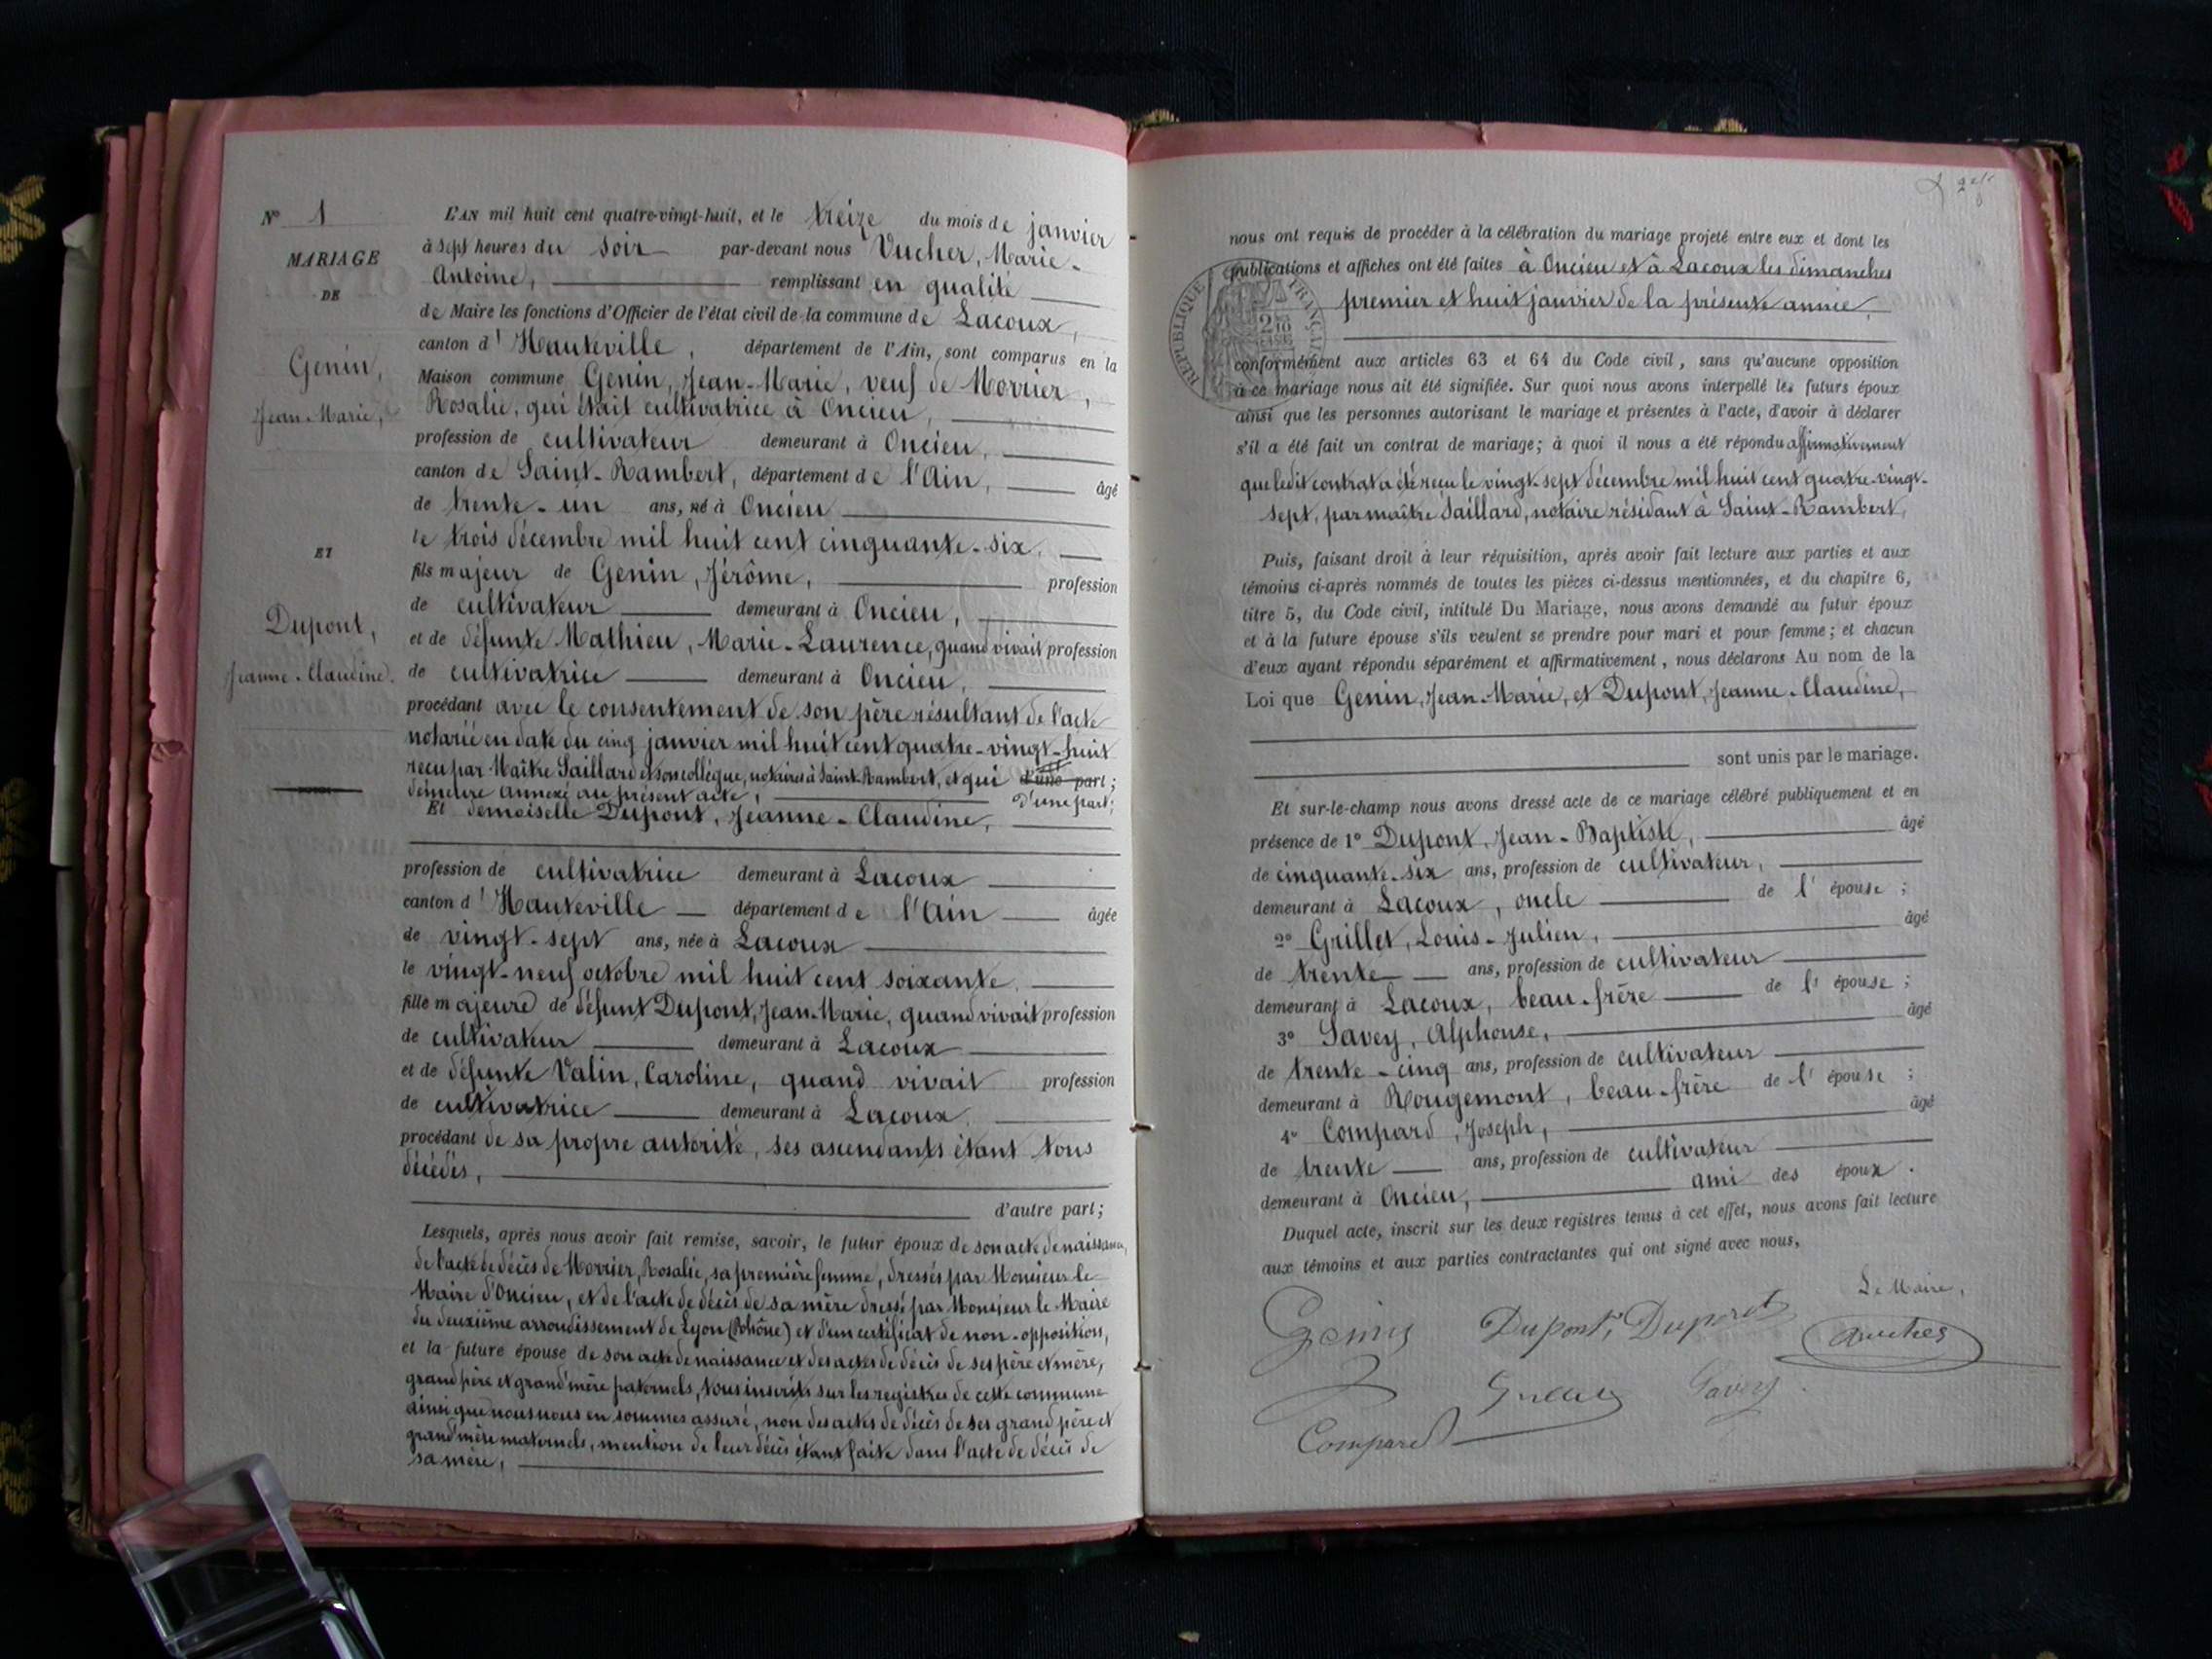 N° 1
MARIAGE
DE
Genin,
Jean-Marie,
ET
Dupont,
Jeanne-Claudine.
L'AN mil huit cent quatre-vingt-huit, et le treize du mois de janvier
à sept heures du soir par-devant nous Vucher, Marie-
Antoine, remplissant en qualité
de Maire les fonctions d'Officier de l'état civil de la commune de Lacoux,
canton d'Hauteville, département de l'Ain, sont comparus en la
Maison commune Genin, Jean-Marie, veuf de Morrier,
Rosalie, qui était cultivatrice à Oncieu,
profession de cultivateur demeurant à Oncieu,
canton de Saint-Rambert, département de l'Ain, âgé
de trente-un ans, né à Oncieu
le trois décembre mil huit cent cinquante-six,
fils majeur de Genin, Jérôme, profession
de cultivateur demeurant à Oncieu,
et de défunte Mathieu, Marie-Laurence, quand vivait profession
de cultivatrice demeurant à Oncieu,
procédant avec le consentement de son père résultant de l'acte
notarié en date du cinq janvier mil huit cent quatre-vingt-huit
reçu par Maître Saillard et son collègue, notaires à Saint-Rambert, et qui d'une part;
demeure annexé au présent acte, d'une part;
Et demoiselle Dupont, Jeanne-Claudine,
profession de cultivatrice demeurant à Lacoux
canton d'Hauteville département de l'Ain âgée
de vingt-sept ans, née à Lacoux
le vingt-neuf octobre mil huit cent soixante,
fille majeure de défunt Dupont, Jean-Marie, quand vivait profession
de cultivateur demeurant à Lacoux
et de défunte Valin, Caroline, quand vivait profession
de cultivatrice demeurant à Lacoux,
procédant de sa propre autorité, ses ascendants étant tous
décédés,
d'autre part;
Lesquels, après nous avoir fait remise, savoir, le futur époux de son acte de naissance,
de l'acte de décès de Morrier, Rosalie, sa première femme, dressés par Monsieur le
Maire d'Oncieu, et de l'acte de décès de sa mère dressé par Monsieur le Maire
du deuxième arrondissement de Lyon (Rhône) et d'un certificat de non-opposition,
et la future épouse de son acte de naissance et des actes de décès de ses père et mère,
grand père et grand'mère paternels, tous inscrits sur les registres de cette commune
ainsi que nous nous en sommes assuré, non des actes de décès de ses grand père et
grand'mère maternels, mention de leur décès étant faite dans l'acte de décès de
sa mère,
nous ont requis de procéder à la célébration du mariage projeté entre eux et dont les
publications et affiches ont été faites à Oncieu et à Lacoux les dimanches
premier et huit janvier de la présente année,
RÉPUBLIQUE FRANÇAISE
conformément aux articles 63 et 64 du Code civil, sans qu'aucune opposition
à ce mariage nous ait été signifiée. Sur quoi nous avons interpellé les futurs époux
ainsi que les personnes autorisant le mariage et présentes à l'acte, d'avoir à déclarer
s'il a été fait un contrat de mariage; à quoi il nous a été répondu affirmativement
que ledit contrat a été reçu le vingt-sept décembre mil huit cent quatre-vingt-
sept, par maître Saillard, notaire résidant à Saint-Rambert,
Puis, faisant droit à leur réquisition, après avoir fait lecture aux parties et aux
témoins ci-après nommés de toutes les pièces ci-dessus mentionnées, et du chapitre 6,
titre 5, du Code civil, intitulé Du Mariage, nous avons demandé au futur époux
et à la future épouse s'ils veulent se prendre pour mari et pour femme; et chacun
d'eux ayant répondu séparément et affirmativement, nous déclarons Au nom de la
Loi que Genin, Jean-Marie, et Dupont, Jeanne-Claudine,
sont unis par le mariage.
Et sur-le-champ nous avons dressé acte de ce mariage célébré publiquement et en
présence de 1° Dupont, Jean-Baptiste, âgé
de cinquante-six ans, profession de cultivateur,
demeurant à Lacoux, oncle de l'épouse;
2° Grillet, Louis-Julien, âgé
de trente ans, profession de cultivateur
demeurant à Lacoux, beau-frère de l'épouse;
3° Savey, Alphonse, âgé
de trente-cinq ans, profession de cultivateur
demeurant à Rougemont, beau-frère de l'épouse;
4° Compard, Joseph, âgé
de trente ans, profession de cultivateur
demeurant à Oncieu, ami des époux.
Duquel acte, inscrit sur les deux registres tenus à cet effet, nous avons fait lecture
aux témoins et aux parties contractantes qui ont signé avec nous,
Le Maire,
Genin Dupont Dupont
Savey
Compard